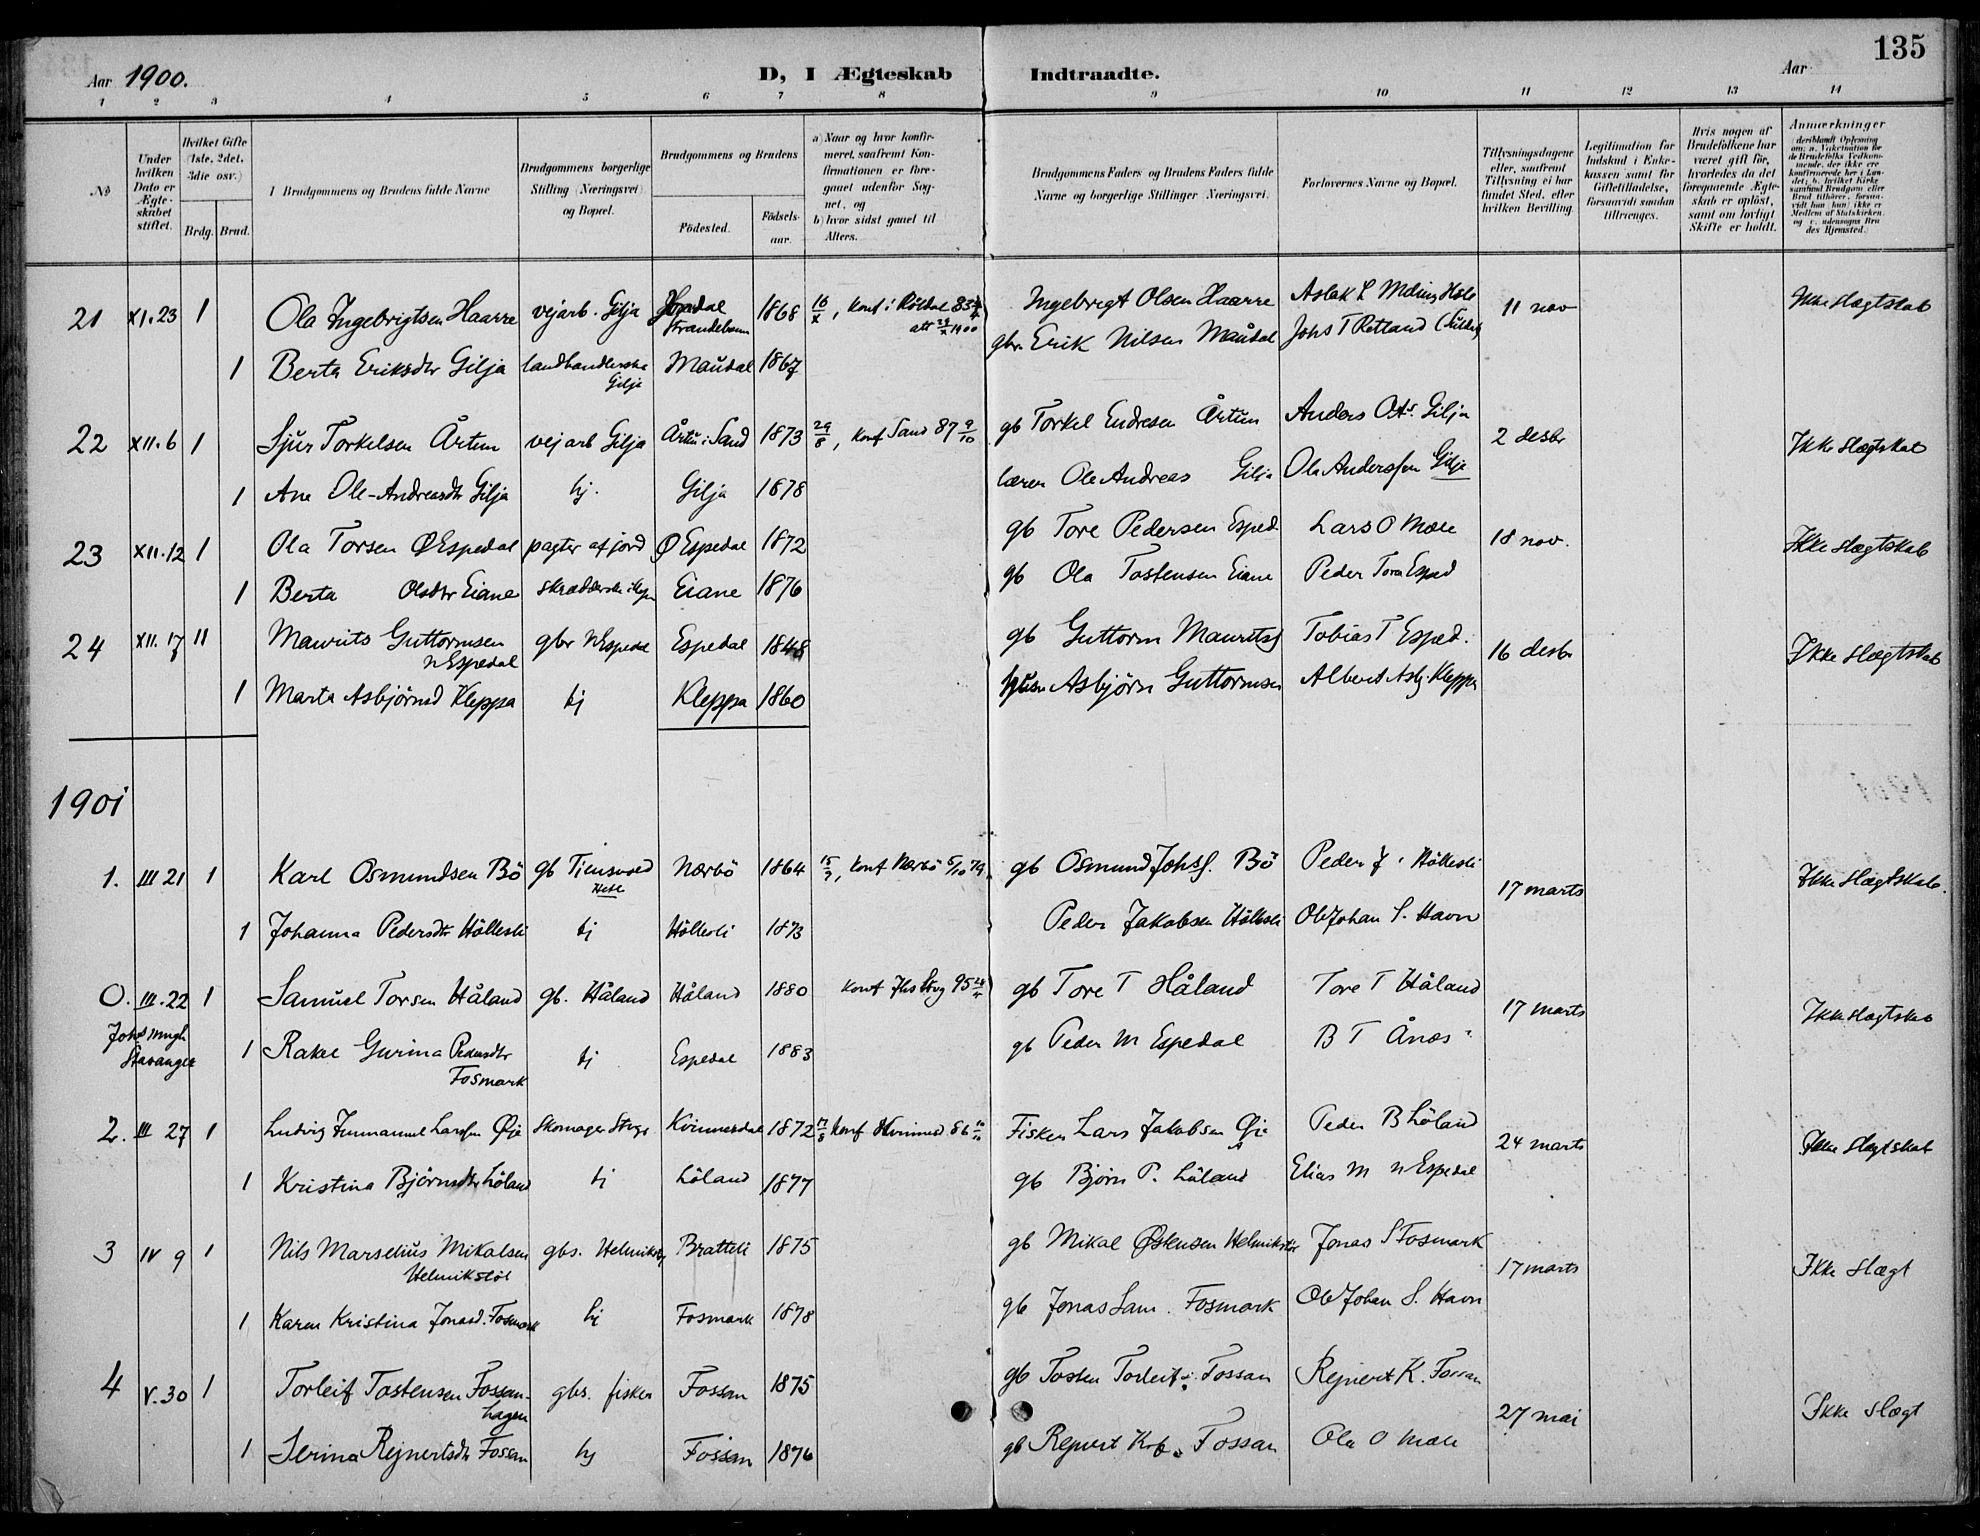 135
Aar 1900. D, I Ægteskab Indtraadte. Aar
1 2 3 4 5 6 7 8 9 10 11 12 13 14
No
Under hvilken Dato er Ægteskabet stiftet.
Hvilket Gifte (1ste, 2det, 3die osv.)
Brdg. Brud.
Brudgommens og Brudens fulde Navne
Brudgommens borgerlige Stilling (Næringsvei) og Bopæl.
Brudgommens og Brudens
Födested. Födsels-aar.
a) Naar og hvor konfirmeret, saafremt Konfirmationen er foregaaet udenfor Sognet, og
b) hvor sidst gaaet til Alters.
Brudgommens Faders og Brudens Faders fulde Navne og borgerlige Stillinger (Næringsvei).
Forlovernes Navne og Bopæl.
Tillysningsdagene eller, saafremt Tillysning ei har fundet Sted, efter hvilken Bevilling.
Legitimation for Indskud i Enkekassen samt for Giftetilladelse, forsaavidt saadan tiltrænges.
Hvis nogen af Brudefolkene har været gift för, hvorledes da det foregaaende Ægteskab er oplöst, samt om lovligt Skifte er holdt.
Anmærkninger
21 XI.23 1 Ola Ingebrigtsen Haarre vejarb. Gilja 1868 16/X, konf i Röldal 83 Ingebregt Olsen Haarre 11 nov Ikke slægtskab
1 Berta Eriksdtr Gilja landhandlerske Gilja Maudal 1867 gbr. Erik Nilsen Maudal
22 XII.6 1 Sjur Torkelsen Årtun vejarb Gilja Årtun i Sand 1873 29/8, konf Sand 87 9/10 gb Torkel Endresen Årtun Anders Gilja 2 desbr Ikke slægtskab
1 Ane Ole-Andreasdtr Gilja hj. Gilja 1878 Ole Andreas Gilja Ola Anderssen Gilje
23 XII.12 1 Ola Torsen ØEspedal pagter af jord Ø Espedal 1872 gb Tore Pedersen Esped. Lars O Mæle 18 nov. Ikke slægtskab
1 Berta Olsdtr Eiane Eiane 1876 gb Ola Tostensen Eiane Peder Tors Esped
24 XII.17 11 Maurits Guttormsen nEspedal gbr nEspedal Espedal 1848 gb Guttorm Mauritss Tobias T Esped. 16 desbr Ikke slægtskab
1 Marta Asbjörnsd Kleppa tj Kleppa 1860 Asbjörn Guttormsen Albert Asbj. Kleppa
1901
1. III 21 1 Karl Osmundsen Bö gb Hele Nærbö 1864 15/7, konf Nærbö 5/10 79 gb Osmund Johss. Bö Peder J. Höllesli 17 marts Ikke slægtskab.
1 Johanna Pedersdtr Höllesli tj Höllesli 1873 Peder Jakobsen Höllesli Ole Johan S. Havn
O. III.22 1 Samuel Torsen Håland gb. Håland Håland 1880 konf 95 gb Tore T Håland Tore T Håland 17 marts Ikke slægtskab
Stavanger
1 Rakel Gurina Pedersdtr Fosmark tj Espedal 1883 gb Peder M Espedal B T Ånes
2. III 27 1 Ludvig Immanuel Larssen Øje Skomager Kvinnesdal 1872 konf 86 Fisker Lars Jakobsen Øie Peder B Löland 24 marts Ikke slægtskab
1 Kristina Björnsdtr Löland tj Löland 1877 gb Björn P. Löland Elias M nEspedal
3 IV 9 1 Nils Marselius Mikalsen Helmikstöl gbs. Bratteli 1875 gb Mikal Østensen Helmikstöl Jonas S Fosmark 17 marts Ikke slægt
1 Karen Kristina Jonasd. Fosmark hj Fosmark 1878 gb Jonas Sam. Fosmark Ole Johan S. Havn
4 V.30 1 Torleif Tostensen Fossanhagen gbs. fisker Fossan 1875 gb Tosten Torleifs. Fossan Rejnert K. Fossan 27 mai Ikke slægt
1 Serina Rejnertsdtr Fossan hj Fossan 1876 gb Rejnert Fossan Ola O Mæle